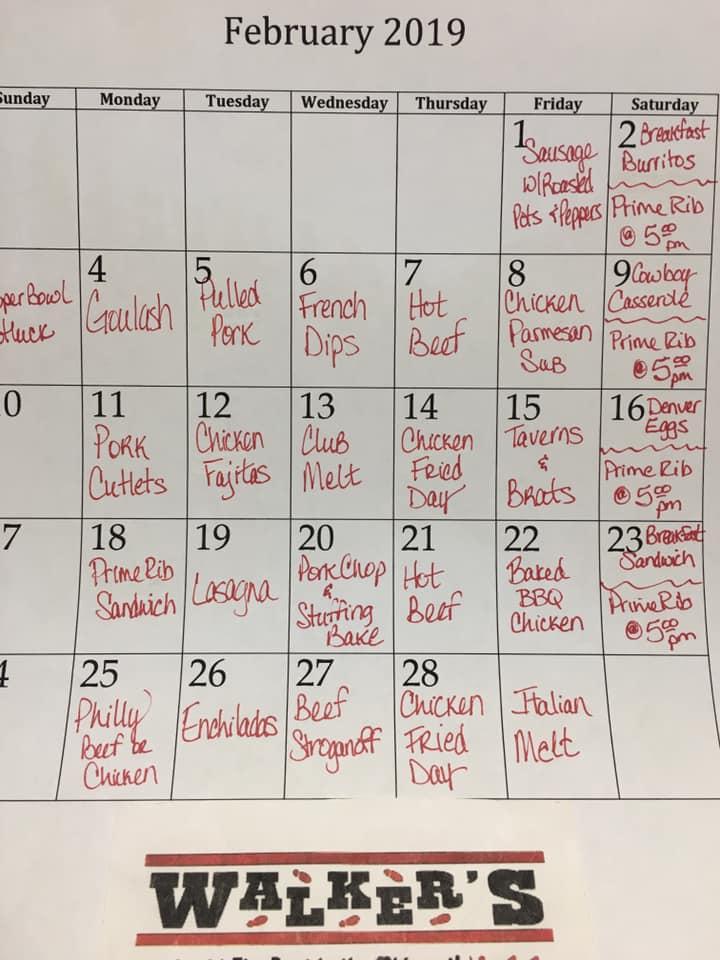 February 2019
Sunday Monday Tuesday Wednesday Thursday Friday Saturday
1 Sausage
W/Roasted
Pots & Peppers
2 Breakfast
Burritos
Prime Rib
@ 5:00
pm
per Bowl
tluck
4
Goulash
5
Pulled
Pork
6
French
Dips
7
Hot
Beef
8
Chicken
Parmesan
Sub
9 Cowboy
Casserole
Prime Rib
@ 5:00
pm
0
11
Pork
Cutlets
12
Chicken
Fajitas
13
Club
Melt
14
Chicken
Fried
Day
15
Taverns
&
Brats
16 Denver
Eggs
Prime Rib
@ 5:00
pm
7
18
Prime Rib
Sandwich
19
Lasagna
20
Pork Chop
&
Stuffing
Bake
21
Hot
Beef
22
Baked
BBQ
Chicken
23 Breakfast
Sandwich
Prime Rib
@ 5:00
pm
4
25
Philly
Beef
Chicken
26
Enchiladas
27
Beef
Stroganoff
28
Chicken
Fried
Day
Italian
Melt
WALKER'S